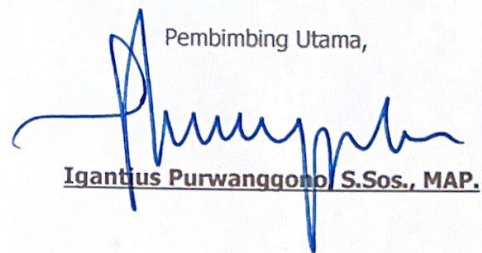 Pembimbing Utama,
Igantius Purwanggono, S.Sos., MAP.